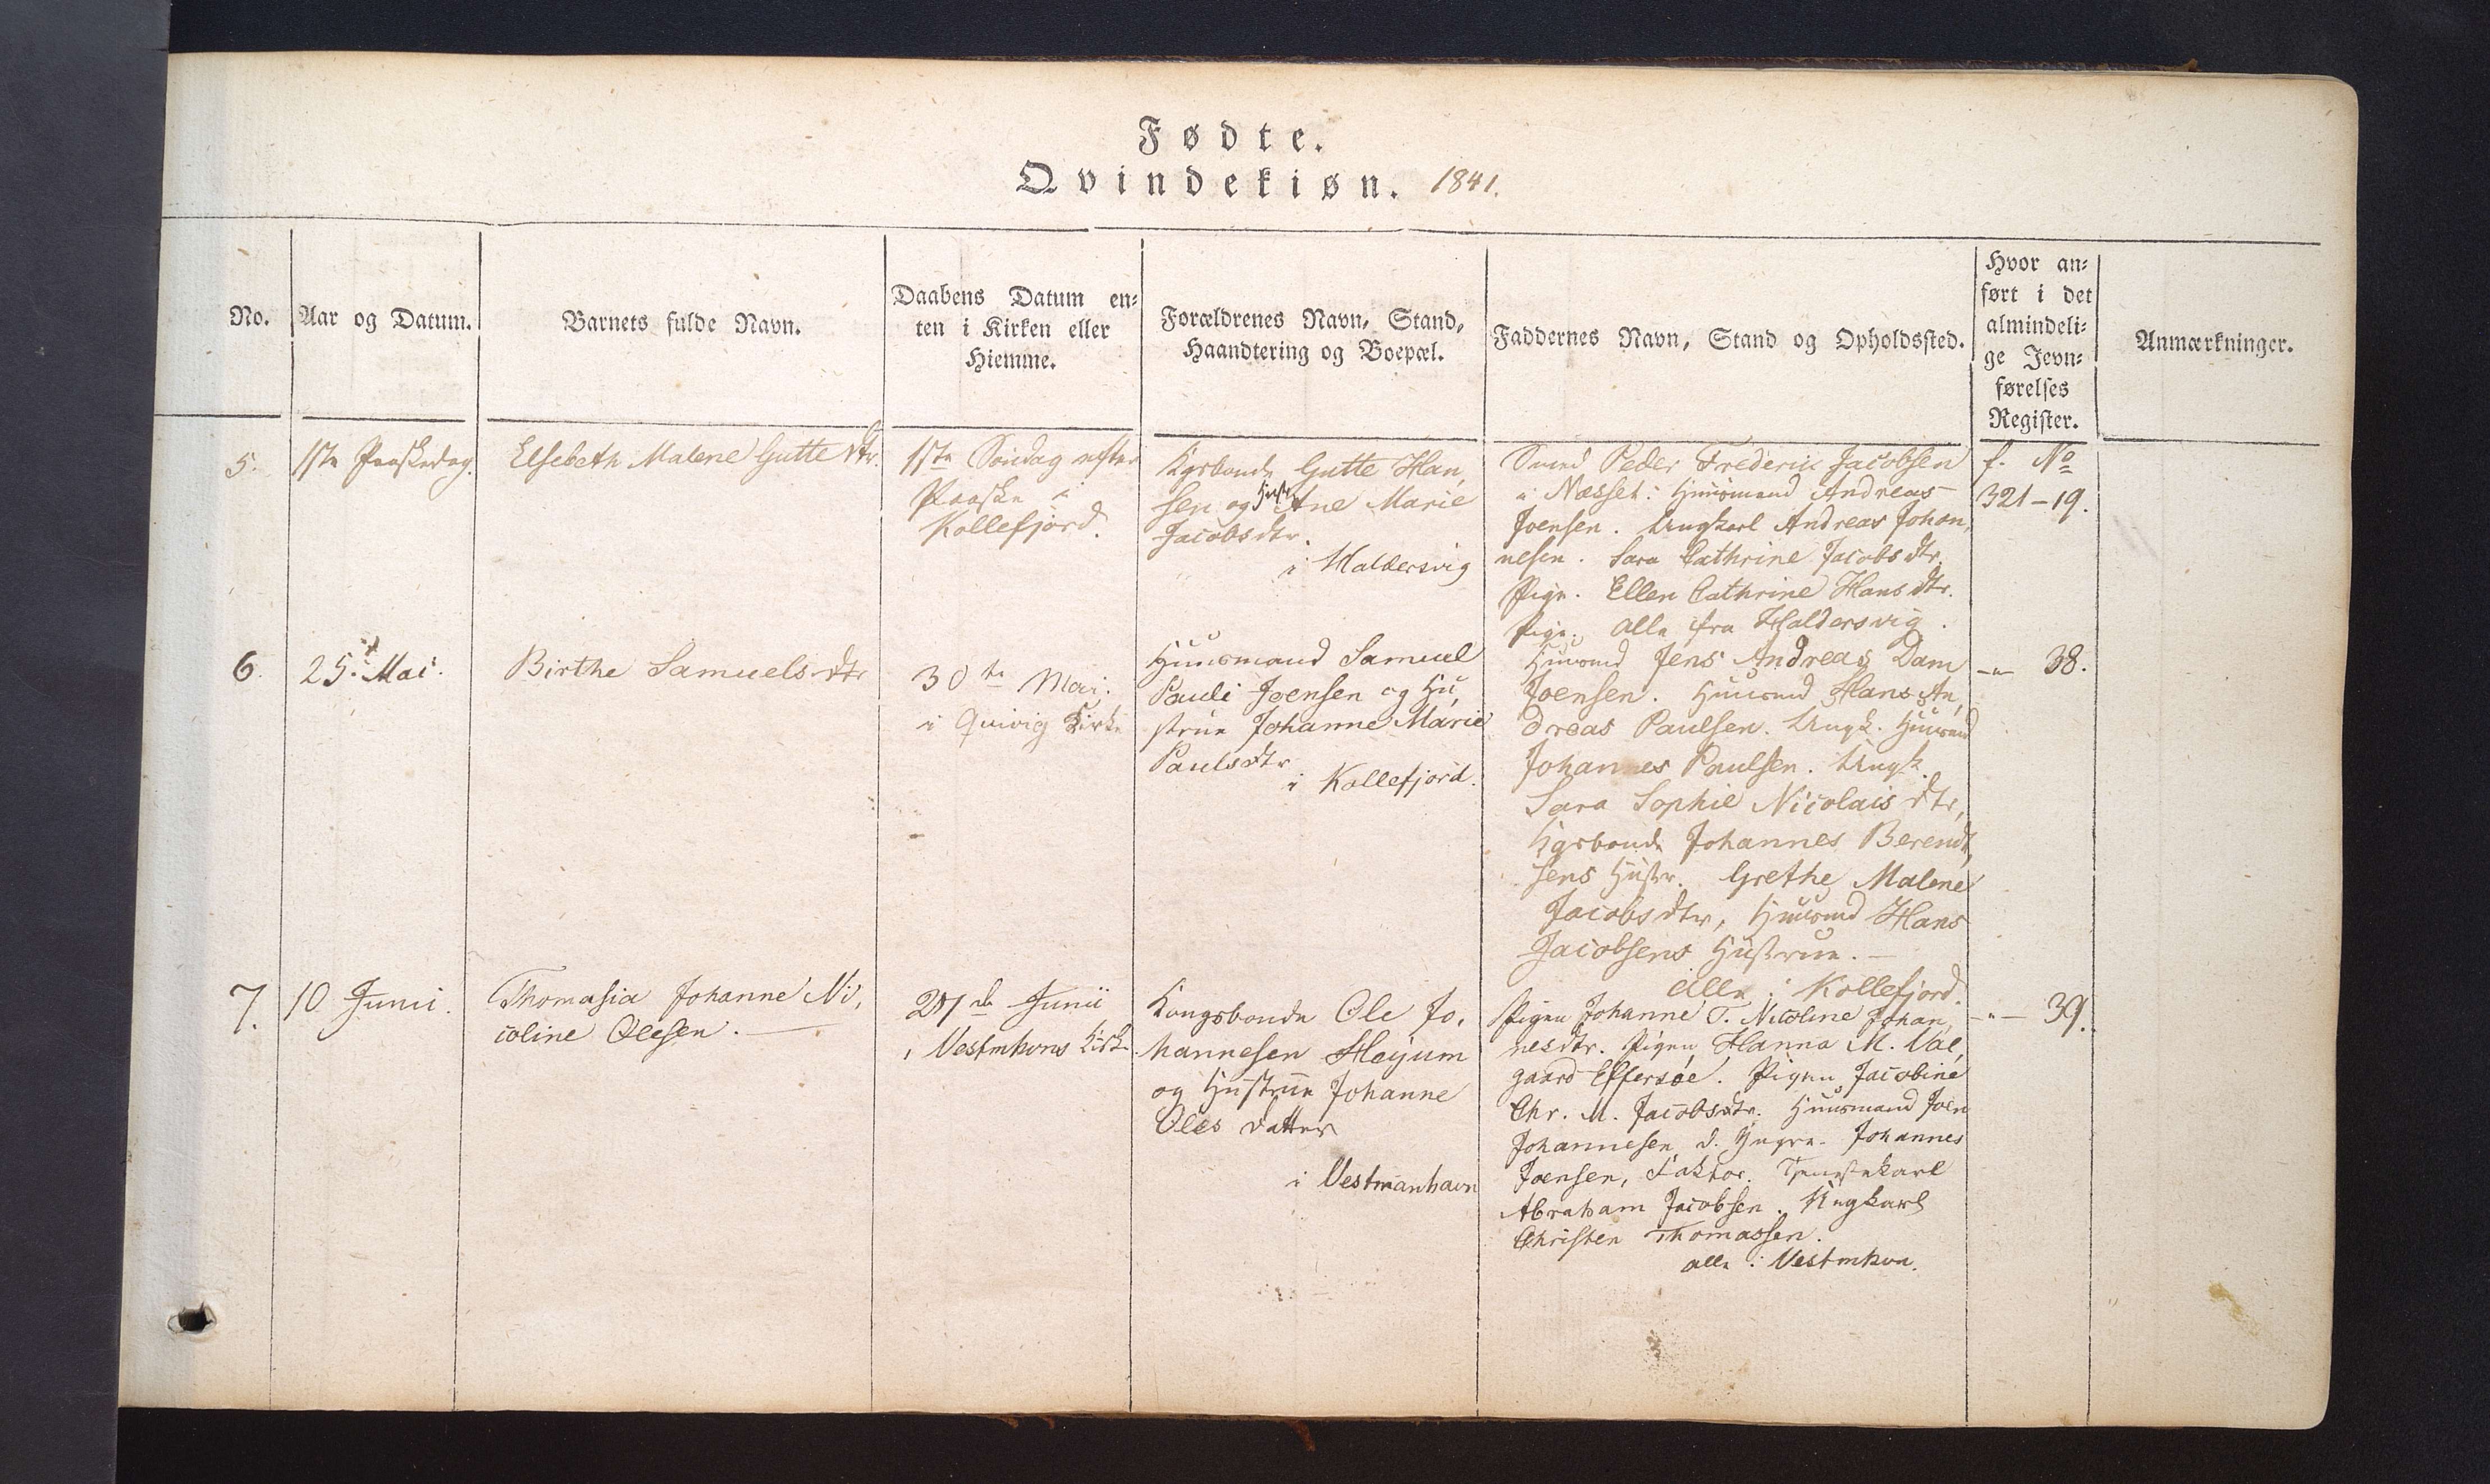 Fødte.
Qvindekiøn. 1841.
No.
Aar og Datum.
Barnets fulde Navn.
Daabens Datum en-
ten i Kirken eller
Hiemme.
Forældrenes Navn, Stand,
Haandtering og Boepæl.
Faddernes Navn, Stand og Opholdssted.
Hvor an-
ført i det
almindeli-
ge Jevn-
førelses
Register.
Anmærkninger.
5.
1ste Paaskedag.
Elsebeth Malene Gutte dtr.
1ste Søndag efter
Paaske i
Kollefjord.
Kgsbonde Gutte Han,
sen og Hustr Ane Marie
Jacobsdtr.
i Haldersvig
Svend Peder Frederik Jacobsen
i Næsset. Huusmand Andreas
Joensen. Ungkarl Andreas Johan,
nesen. Sara Cathrine Jacobsdtr.
Pige. Ellen Cathrine Hansdtr.
Pige. Alle fra Haldersvig.
f. No
321-19.
6.
25. Mai.
Birthe Samuelsdtr
30te Mai.
i Qvivig Kirke
Huusmand Samuel
Pauli Joensen og Hu,
strue Johanne Marie
Paulsdtr
i Kollefjord.
Huusmd Jens Andreas Dam
Joensen. Huusmd Hans An,
dreas Paulsen. Ungk. Huusmd
Johannes Paulsen. Ungk.
Sara Sophie Nicolais dtr,
Kgsbonde Johannes Berendt,
sens Hustr. Grethe Malene
Jacobsdtr, Huusmd Hans
Jacobsens Hustrue.
Alle i Kollefjord.
-"- 38.
7.
10 Junii.
Thomasia Johanne Ni,
coline Olesen.
27de Junii
i Vestmhvns Kirke
Kongsbonde Ole Jo,
hannesen Høyum
og Hustrue Johanne
Oles datter
i Vestmanhavn
Pigen Johanne T. Nicoline Johan,
nesdtr. Pigen Hanna M. Val,
gaard Effersøe. Pigen Jacobine
Chr. M. Jacobsdtr. Huusmand Joen
Johannesen d. Yngre. Johannes
Joensen, Faktor. Tjenestekarl
Abraham Jacobsen. Ungkarl
Christen Thomassen.
alle i Vestmhvn.
-"- 39.